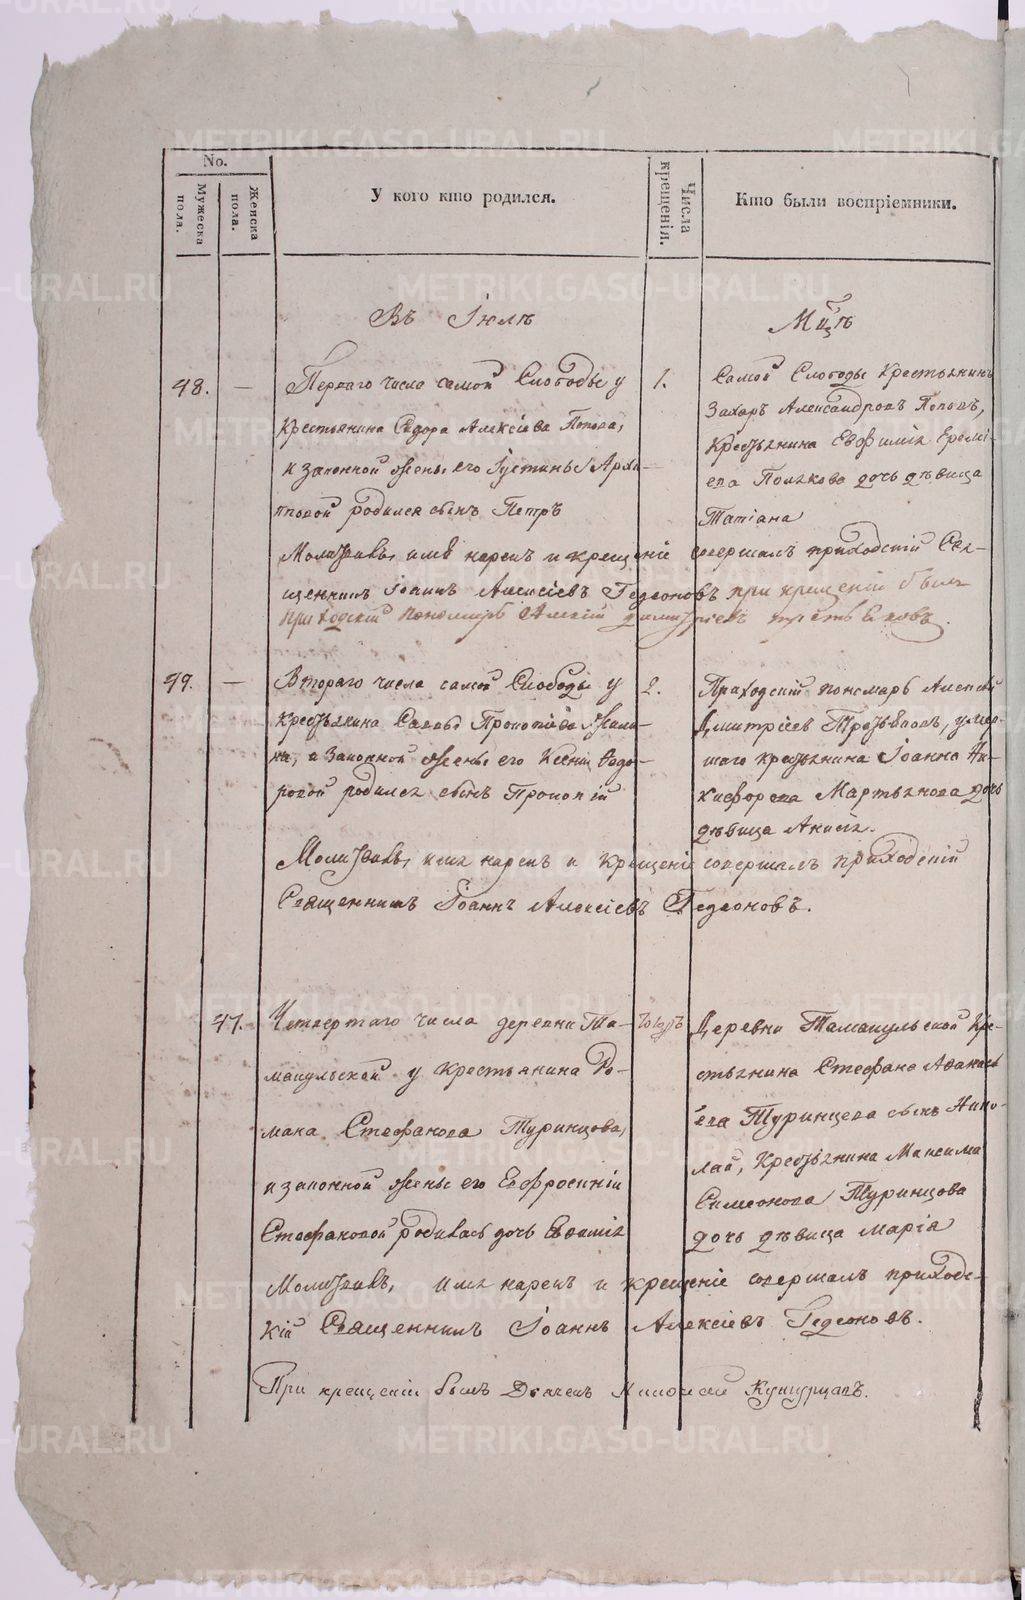 No.
Мужеска пола.
Женска пола.
У кого кто родился.
Числа крещенія.
Кто были воспріемники.
Въ Іюлѣ
Мцѣ
48. — Перваго числа самой Слободы у
крестьянина Сидора Алексіева Попова,
и законной жены его Іустины Архи-
повой родился сынъ Петръ
1.
Самой Слободы Крестьянинъ
Захаръ Александровъ Поповъ,
Крестьянина Евфимія Ереми-
ева Полякова дочь дѣвица
Татіана
Молитвовъ, имя нарекъ и крещеніе совершалъ приходскій Свя-
щенникъ Іоаннъ Алексіевъ Гедеоновъ при крещеніи былъ
приходскій пономарь Алексій Димитріевъ Третьяковъ.
49. — Втораго числа самой Слободы у
крестьянина Саввы Прокопіева
и законной жены его Ксеніи Ѳедо-
ровой родился сынъ Прокопій
2.
Приходскій пономарь Алексій
Димитріевъ Третьяковъ, умер-
шаго крестьянина Іоанна Ни-
кифорова Мартынова дочь
дѣвица Анисія.
Молитвовъ, имя нарекъ и Крещеніе совершалъ приходскій
Священникъ Іоаннъ Алексіевъ Гедеоновъ.
47. Четвертаго числа деревни Та-
макульской у крестьянина Ро-
мана Стефанова Туринцова,
и законной жены его Евфросиніи
Стефановой родилась дочь Евдокія
Деревни Тамакульской Кре-
стьянина Стефана Аѳанась
ева Туринцева сынъ Нико-
лай, Крестьянина Максима
Симеонова Туринцова
дочь дѣвица Марія
Молитвовъ, имя нарекъ и крещеніе совершалъ приходс-
кій Священникъ Іоаннъ Алексіевъ Гедеоновъ.
При крещеніи былъ Дьячекъ Кунгурцовъ.
METRIKI.GASO-URAL.RU